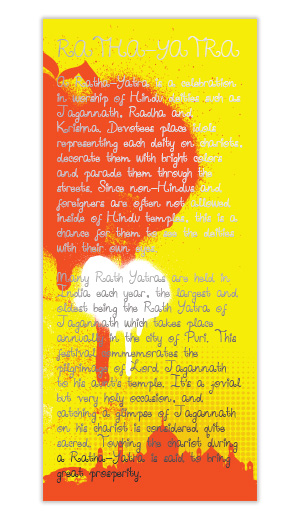 RATHA-YATRA
A Ratha-Yatra is a celebration
in worship of Hindu deities such as
Jagannath, Radha and
Krishna. Devotees place idols
representing each deity on chariots,
decorate them with bright colors
and parade them through the
streets. Since non-Hindus and
foreigners are often not allowed
inside of Hindu temples, this is a
chance for them to see the deities
with their own eyes.
Many Rath Yatras are held in
India each year, the largest and
oldest being the Rath Yatra of
Jagannath which takes place
annually in the city of Puri. This
festival commemorates the
pilgrimage of Lord Jagannath
to his aunt's temple. It's a jovial
but very holy occasion, and
catching a glimpse of Jagannath
on his chariot is considered quite
sacred. Touching the chariot during
a Ratha-Yatra is said to bring
great prosperity.